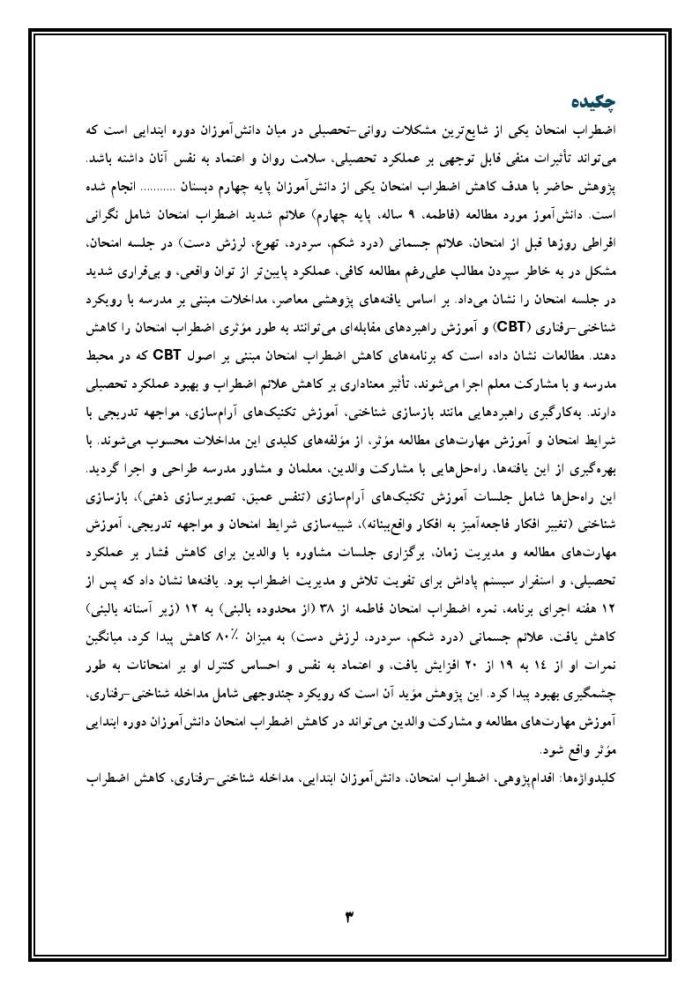 چکیده
اضطراب امتحان یکی از شایع‌ترین مشکلات روانی-تحصیلی در میان دانش‌آموزان دوره ابتدایی است که
می‌تواند تأثیرات منفی قابل توجهی بر عملکرد تحصیلی، سلامت روان و اعتماد به نفس آنان داشته باشد.
پژوهش حاضر با هدف کاهش اضطراب امتحان یکی از دانش‌آموزان پایه چهارم دبستان ........... انجام شده
است. دانش‌آموز مورد مطالعه (فاطمه، ۹ ساله، پایه چهارم) علائم شدید اضطراب امتحان شامل نگرانی
افراطی روزها قبل از امتحان، علائم جسمانی (درد شکم، سردرد، تهوع، لرزش دست) در جلسه امتحان،
مشکل در به خاطر سپردن مطالب علی‌رغم مطالعه کافی، عملکرد پایین‌تر از توان واقعی، و بی‌قراری شدید
در جلسه امتحان را نشان می‌داد. بر اساس یافته‌های پژوهشی معاصر، مداخلات مبتنی بر مدرسه با رویکرد
شناختی-رفتاری (CBT) و آموزش راهبردهای مقابله‌ای می‌توانند به طور مؤثری اضطراب امتحان را کاهش
دهند. مطالعات نشان داده است که برنامه‌های کاهش اضطراب امتحان مبتنی بر اصول CBT که در محیط
مدرسه و با مشارکت معلم اجرا می‌شوند، تأثیر معناداری بر کاهش علائم اضطراب و بهبود عملکرد تحصیلی
دارند. به‌کارگیری راهبردهایی مانند بازسازی شناختی، آموزش تکنیک‌های آرام‌سازی، مواجهه تدریجی با
شرایط امتحان و آموزش مهارت‌های مطالعه مؤثر، از مؤلفه‌های کلیدی این مداخلات محسوب می‌شوند. با
بهره‌گیری از این یافته‌ها، راه‌حل‌هایی با مشارکت والدین، معلمان و مشاور مدرسه طراحی و اجرا گردید.
این راه‌حل‌ها شامل جلسات آموزش تکنیک‌های آرام‌سازی (تنفس عمیق، تصویرسازی ذهنی)، بازسازی
شناختی (تغییر افکار فاجعه‌آمیز به افکار واقع‌بینانه)، شبیه‌سازی شرایط امتحان و مواجهه تدریجی، آموزش
مهارت‌های مطالعه و مدیریت زمان، برگزاری جلسات مشاوره با والدین برای کاهش فشار بر عملکرد
تحصیلی، و استقرار سیستم پاداش برای تقویت تلاش و مدیریت اضطراب بود. یافته‌ها نشان داد که پس از
۱۲ هفته اجرای برنامه، نمره اضطراب امتحان فاطمه از ۳۸ (از محدوده بالینی) به ۱۲ (زیر آستانه بالینی)
کاهش یافت، علائم جسمانی (درد شکم، سردرد، لرزش دست) به میزان ۸۰٪ کاهش پیدا کرد، میانگین
نمرات او از ۱۴ به ۱۹ از ۲۰ افزایش یافت، و اعتماد به نفس و احساس کنترل او بر امتحانات به طور
چشمگیری بهبود پیدا کرد. این پژوهش مؤید آن است که رویکرد چندوجهی شامل مداخله شناختی-رفتاری،
آموزش مهارت‌های مطالعه و مشارکت والدین می‌تواند در کاهش اضطراب امتحان دانش‌آموزان دوره ابتدایی
مؤثر واقع شود.
کلیدواژه‌ها: اقدام‌پژوهی، اضطراب امتحان، دانش‌آموزان ابتدایی، مداخله شناختی-رفتاری، کاهش اضطراب
۳